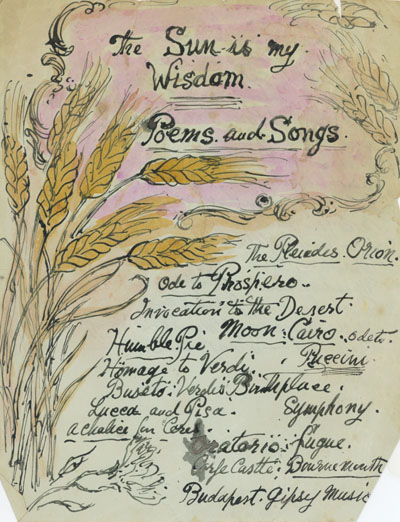 The Sun is my
Wisdom.
Poems and Songs.
The Pleiades. Orion.
Ode to Prospero.
Invocation to the Desert
Moon: Cairo. ode to
Humble Pie. Puccini.
Homage to Verdi.
Buseto: Verdi's Birthplace.
Lucca and Pisa. Symphony.
a chalice for Ceres.
Oratorio: Fugue.
Castle: Bournemouth
Budapest. Gipsy Music